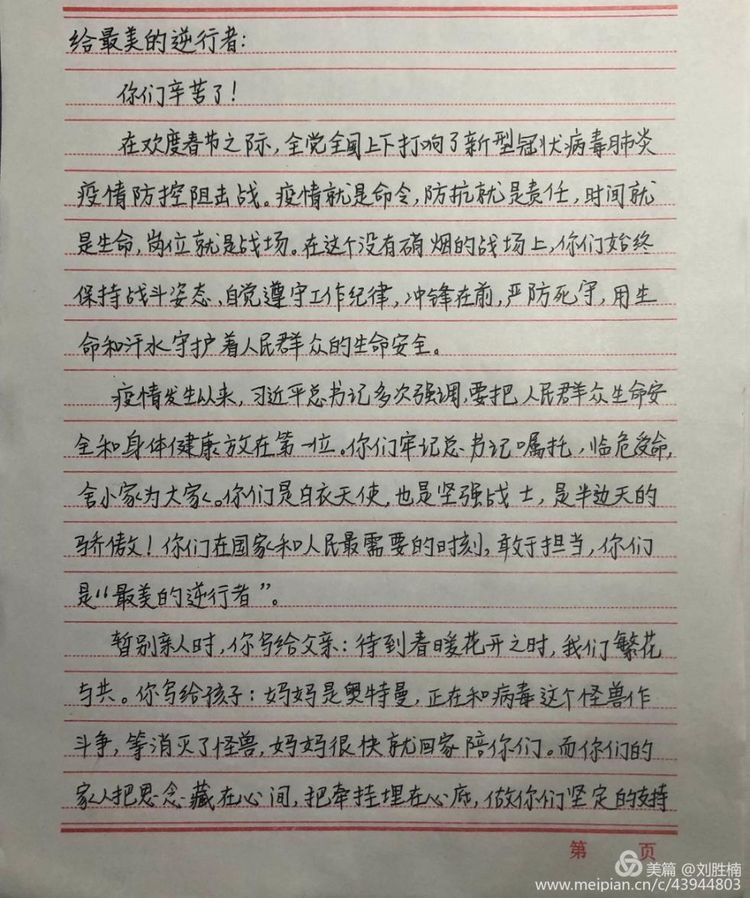 给最美的逆行者:
你们辛苦了!
在欢度春节之际,全党全国上下打响了新型冠状病毒肺炎
疫情防控阻击战。疫情就是命令,防抗就是责任,时间就
是生命,岗位就是战场。在这个没有硝烟的战场上,你们始终
保持战斗姿态,自觉遵守工作纪律,冲锋在前,严防死守,用生
命和汗水守护着人民群众的生命安全。
疫情发生以来,习近平总书记多次强调,要把人民群众生命安
全和身体健康放在第一位。你们牢记总书记嘱托,临危受命,
舍小家为大家。你们是白衣天使,也是坚强战士,是半边天的
骄傲!你们在国家和人民最需要的时刻,敢于担当,你们
是“最美的逆行者”。
暂别亲人时,你写给父亲:待到春暖花开之时,我们繁花
与共。你写给孩子:妈妈是奥特曼,正在和病毒这个怪兽作
斗争,等消灭了怪兽,妈妈很快就回家陪你们。而你们的
家人把思念藏在心间,把牵挂埋在心底,做你们坚定的支持
第 页
美篇 @刘胜楠
www.meipian.cn/c/43944803